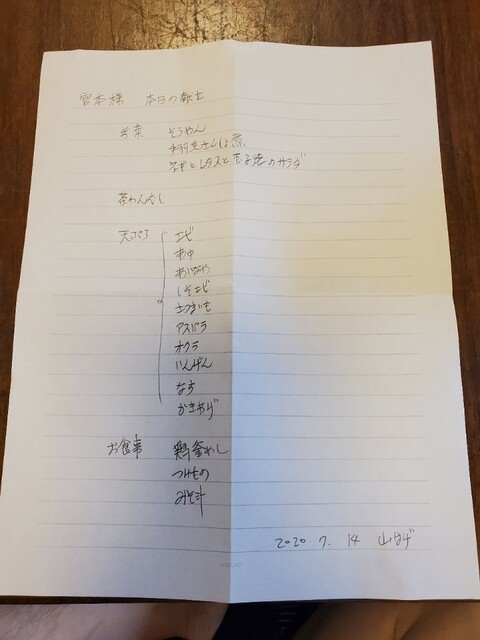 宮本様 本日の献立
前菜 そうめん
手羽先さんしょ煮
レタスと玉子焼のサラダ
茶わんむし
天ぷら エビ
あゆ
しそエビ
さつまいも
アスパラ
オクラ
いんげん
なす
かきあげ
お食事 鶏釜めし
つけもの
みそ汁
2020.7.14 山はげ